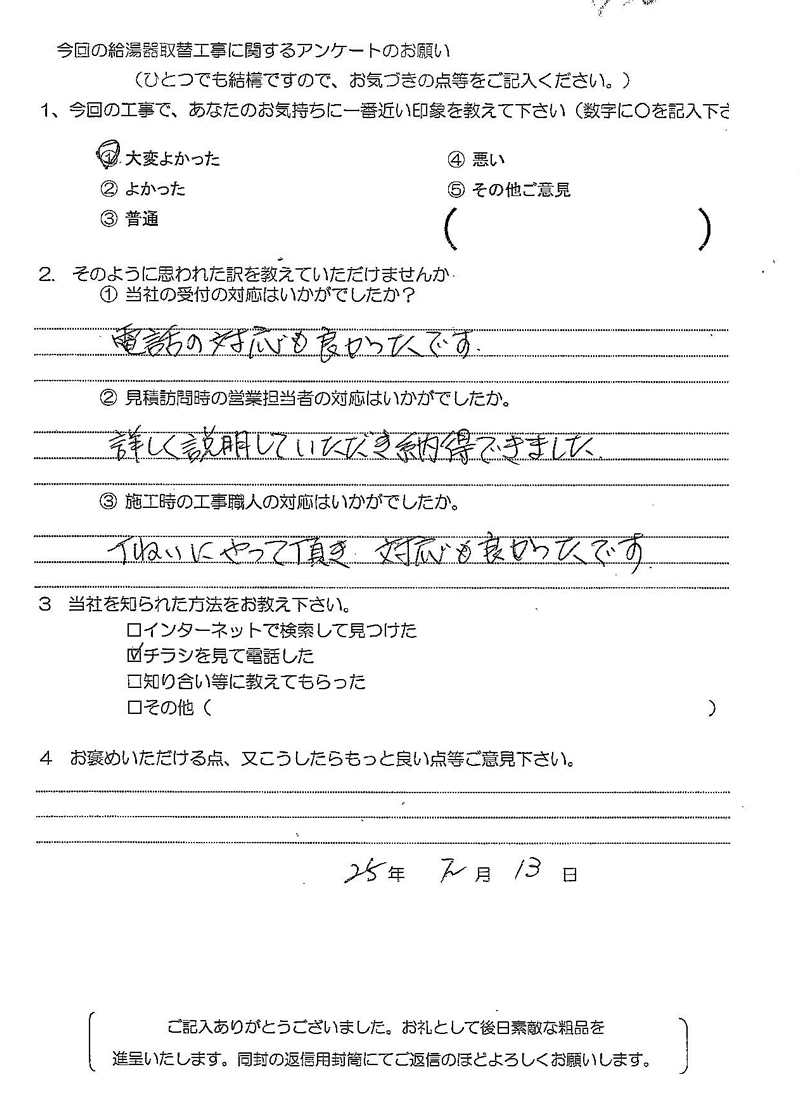 今回の給湯器取替工事に関するアンケートのお願い
（ひとつでも結構ですので、お気づきの点等をご記入ください。）
1、今回の工事で、あなたのお気持ちに一番近い印象を教えて下さい（数字に〇を記入下さ
① 大変よかった ④ 悪い
② よかった ⑤ その他ご意見
③ 普通 ( )
2. そのように思われた訳を教えていただけませんか
① 当社の受付の対応はいかがでしたか？
電話の対応も良かったです.
② 見積訪問時の営業担当者の対応はいかがでしたか。
詳しく説明していただき納得できました.
③ 施工時の工事職人の対応はいかがでしたか。
ていねいにやって頂き 対応も良かったです.
3 当社を知られた方法をお教え下さい。
□インターネットで検索して見つけた
☑チラシを見て電話した
□知り合い等に教えてもらった
□その他（ ）
4 お褒めいただける点、又こうしたらもっと良い点等ご意見下さい。
25年 月 13日
ご記入ありがとうございました。お礼として後日素敵な粗品を
進呈いたします。同封の返信用封筒にてご返信のほどよろしくお願いします。